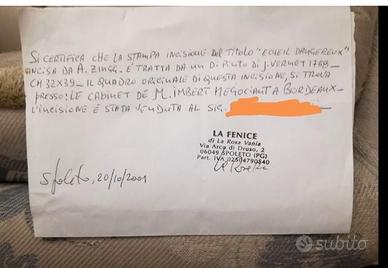 SI CERTIFICA CHE LA STAMPA INCISIONE DEL TITOLO "ECUEIL DANGEREUX"
INCISA DA A. ZINGG. È TRATTA DA UN DIPINTO DI J. VERNET 1768_
CM 32X39_ IL QUADRO ORIGINALE DI QUESTA INCISIONE, SI TROVA
PRESSO: LE CABINET DE M. IMBERT NEGOCIANT A BORDEAUX_
L'INCISIONE È STATA VENDUTA AL SIG.
LA FENICE
di La Rosa Vania
Via Arco di Druso, 2
06049 SPOLETO (PG)
Part. IVA 02304790540
Spoleto, 20/10/2001
subito